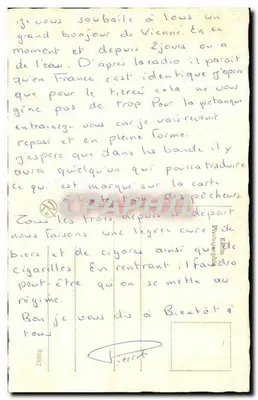 je vous souhaite à tous un
grand bonjour de Vienne. En ce
moment et depuis 2 jours on a
de l'eau. D'après la radio il parait
qu'en France c'est identique j'espère
que pour le tiercé cela ne vous
gène pas de trop Pour la pétanque
entrainez vous car je vais revenir
reposé et en pleine forme.
j'espère que dans la bande il y
aura quelqu'un qui pourra traduire
ce qui est marqué sur la carte
des pêcheurs
Tous les trois depuis le départ
nous faisons une légère cure de
bière et de cigares ainsi que de
cigarilles. En rentrant, il faudra
peut-être qu'on se mette au
régime.
Bon je vous dis à Bientôt à
tous
Pierrot
CPARAMA
Photographie